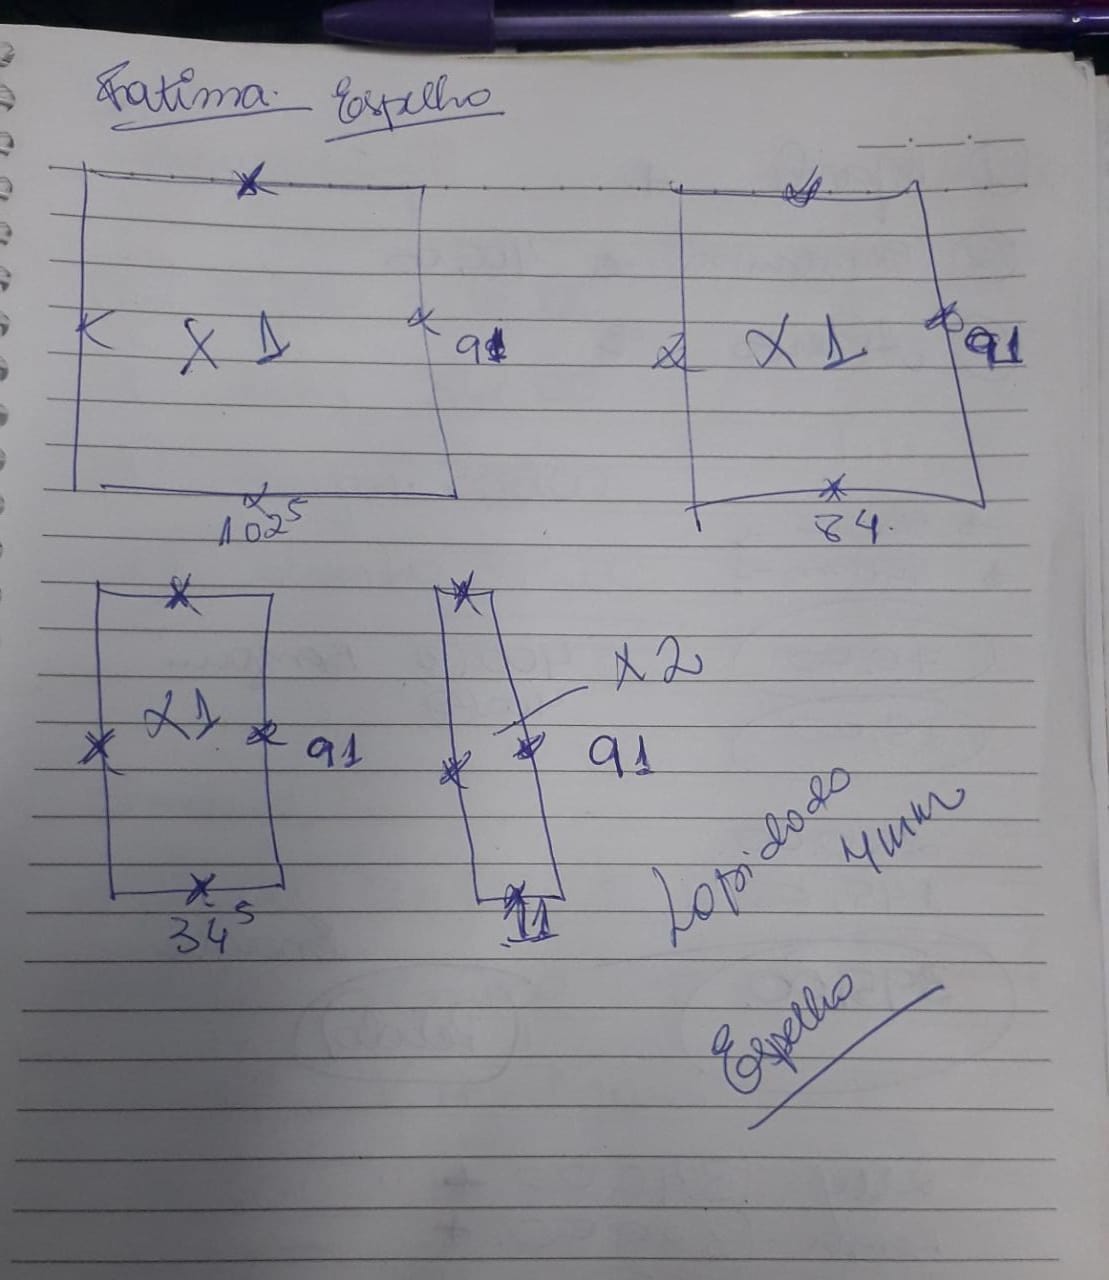 Fatima. Espelho
X 1
91
102⁵
X 1
91
84.
X1
91
34⁵
X 2
91
11
Lapidado
4mm
Espelho